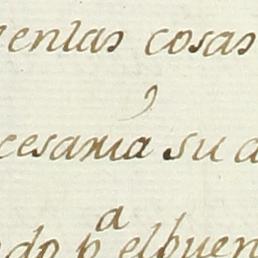 enlas cosas
cesaria su a
do pa elbuen